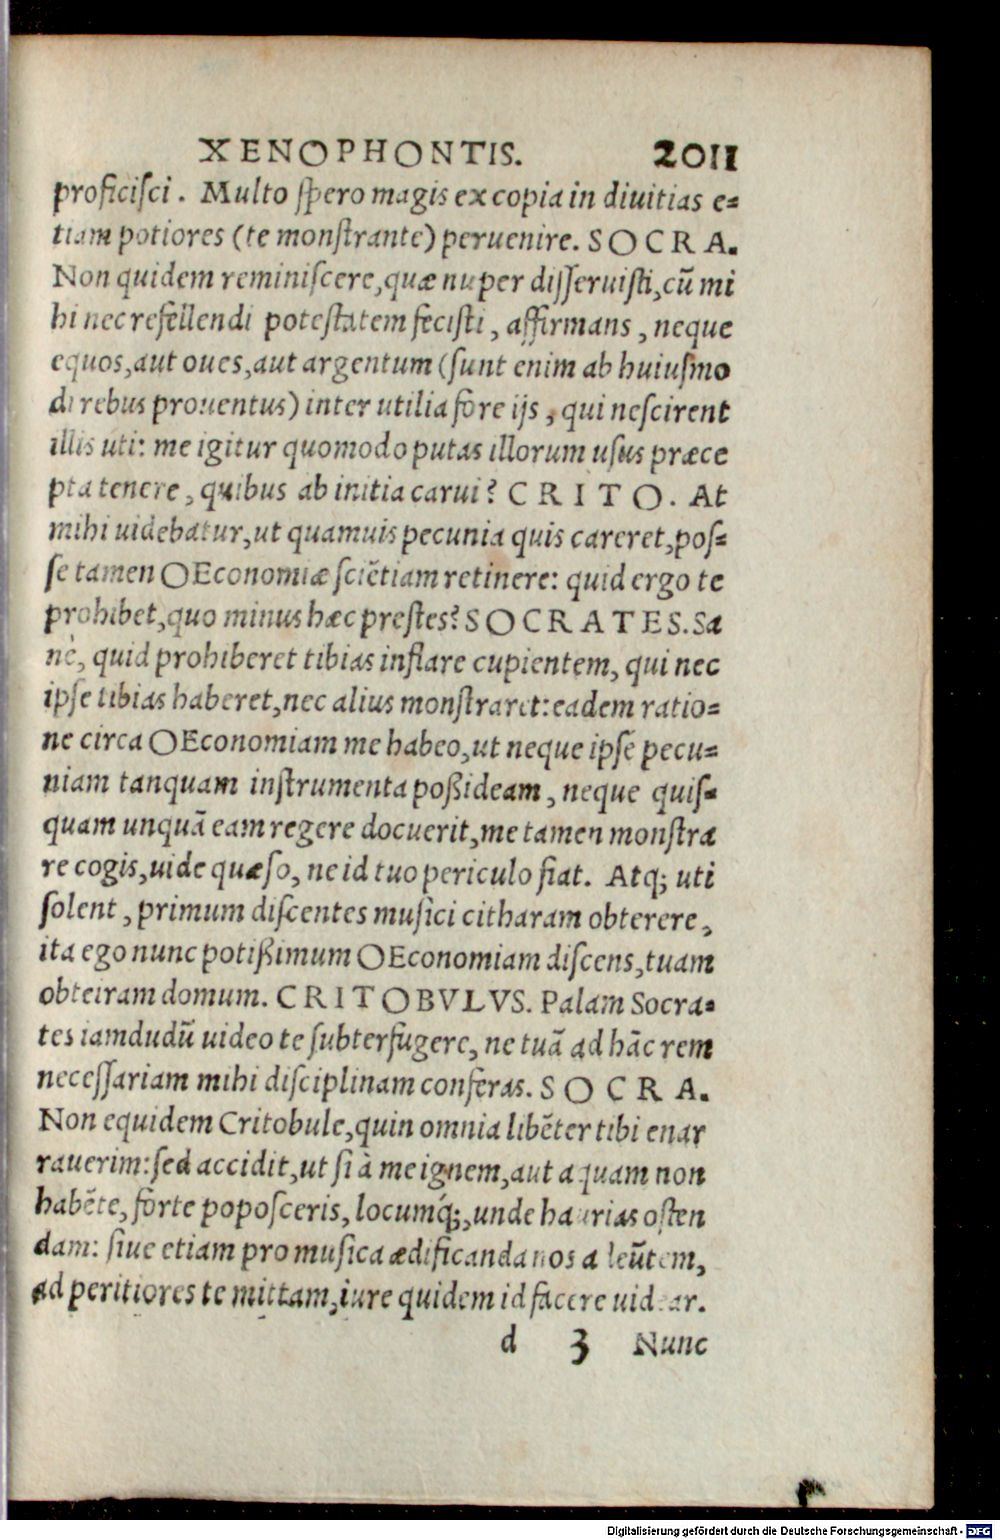 XENOPHONTIS. 2011
proficisci. Multo spero magis ex copia in diuitias e=
tiam potiores (te monstrante) peruenire. SOCRA.
Non quidem reminiscere, quæ nuper disseruisti, cū mi
hi nec refellendi potestatem fecisti, affirmans, neque
equos, aut oues, aut argentum (sunt enim ab huiusmo
di rebus prouentus) inter utilia fore ijs, qui nescirent
illis uti: me igitur quomodo putas illorum usus præce
pta tenere, quibus ab initia carui? CRITO. At
mihi uidebatur, ut quamuis pecunia quis careret, pos=
se tamen OEconomiæ sciētiam retinere: quid ergo te
prohibet, quo minus hæc prestes? SOCRATES. Sa
nè, quid prohiberet tibias inflare cupientem, qui nec
ipse tibias haberet, nec alius monstraret: eadem ratio=
ne circa OEconomiam me habeo, ut neque ipse pecu=
niam tanquam instrumenta poßideam, neque quis=
quam unquā eam regere docuerit, me tamen monstra
re cogis, uide quæso, ne id tuo periculo fiat. Atq; uti
solent, primum discentes musici citharam obterere,
ita ego nunc potißimum OEconomiam discens, tuam
obteiram domum. CRITOBVLVS. Palam Socra=
tes iamdudū uideo te subterfugere, ne tuā ad hāc rem
necessariam mihi disciplinam conferas. SOCRA.
Non equidem Critobule, quin omnia libēter tibi enar
rauerim: sed accidit, ut si à me ignem, aut aquam non
habēte, forte poposceris, locumq́;, unde haurias osten
dam: siue etiam pro musica ædificanda nos a leūtem,
ad peritiores te mittam, iure quidem id facere uidear.
d 3 Nunc
Digitalisierung gefördert durch die Deutsche Forschungsgemeinschaft - DFG